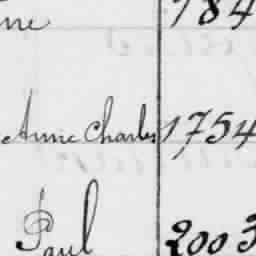 ne 784
Annie Charles 1754
Paul 2003